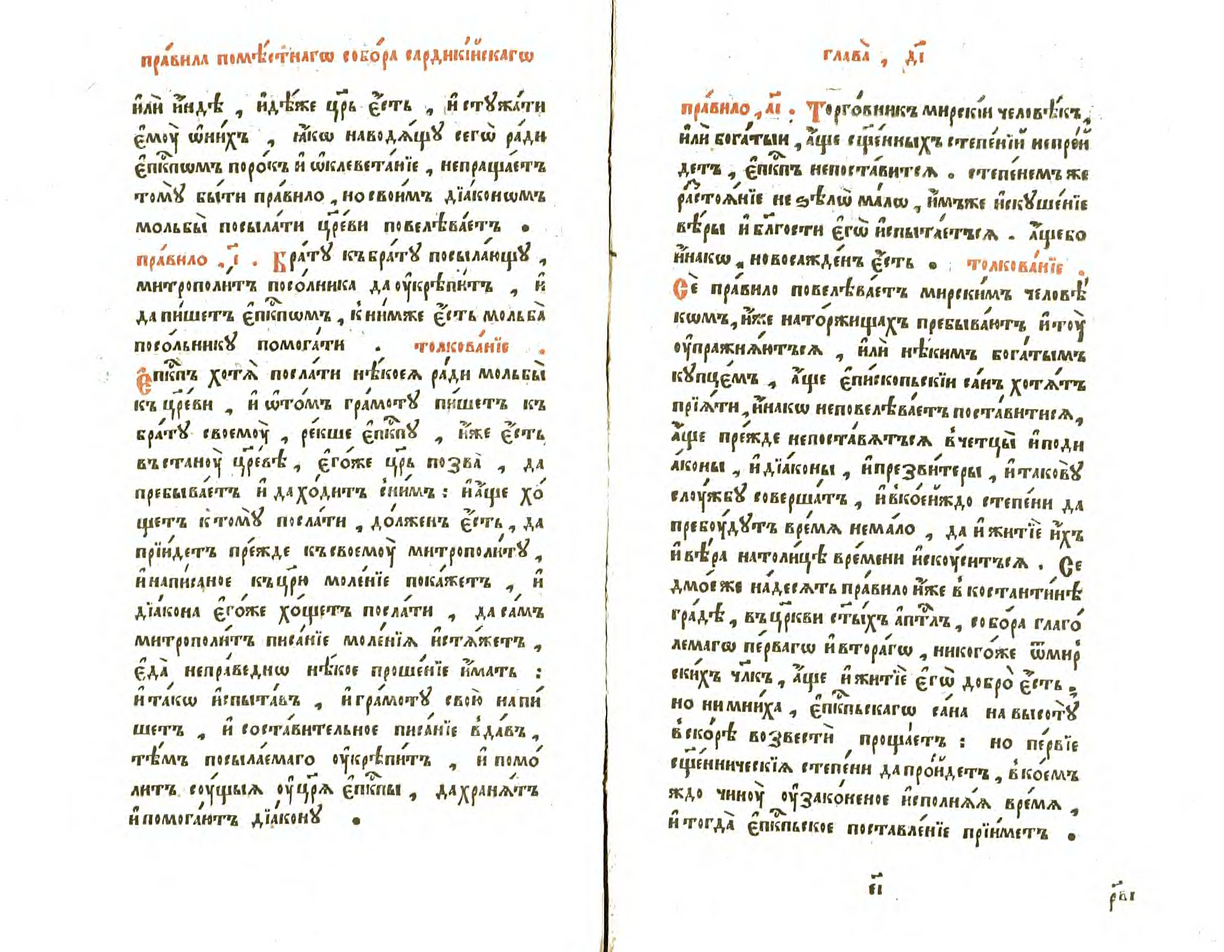 пра́вила помѣ́стнагѡ собо́ра сардикі́йскагѡ
и҆лѝ и҆́ндѣ , и҆дѣ́же цр҃ь є҆́сть , и҆ стꙋжа́ти
є҆мꙋ̀ ѡ҆ни́хъ , ꙗ҆́кѡ наводѧ́щꙋ сегѡ̀ ра́ди
є҆пⷭ҇кпѡмъ поро́къ и҆ ѡ҆клевета́нїе , непраща́етъ
томꙋ̀ бы́ти пра́вило , но свои́мъ дїа́конѡмъ
мольбы̀ посыла́ти цр҃еви повелѣва́етъ .
пра́вило , і҃ . Бра́тꙋ къ бра́тꙋ посыла́ющꙋ ,
митрополи́тъ посо́лника да ᲂу҆крѣпи́тъ , и҆
да пи́шетъ є҆пⷭ҇кпѡмъ , к ни́мже є҆́сть мольба̀
посо́льникꙋ помога́ти . толкова́нїе .
Е҆пⷭ҇кпъ хотѧ̀ посла́ти нѣ́коеѧ ра́ди мольбы̀
къ цр҃еви , и҆ ѡ҆то́мъ гра́мотꙋ пи́шетъ къ
бра́тꙋ своемꙋ̀ , ре́кше є҆пⷭ҇кпꙋ , и҆́же є҆́сть
въ станꙋ̀ цр҃евѣ , є҆го́же цр҃ь позва̀ , да
пребыва́етъ и҆ да хо́дитъ с ни́мъ : и҆ а҆́ще хо́
щетъ к томꙋ̀ посла́ти , до́лженъ є҆́сть , да
прїи́детъ пре́жде къ своемꙋ̀ митрополи́тꙋ ,
и҆ написаное къ цр҃ю моле́нїе пока́жетъ , и҆
дїа́кона є҆го́же хо́щетъ посла́ти , да са́мъ
митрополи́тъ писа́нїе моле́нїѧ и҆стѧ́жетъ ,
є҆да̀ непра́веднѡ нѣ́кое проше́нїе и҆́мать :
и҆ та́кѡ и҆спыта́въ , и҆ гра́мотꙋ свою̀ напи́
шетъ , и҆ соста́вительное писа́нїе вда́въ ,
тѣ́мъ посыла́емаго ᲂу҆крѣпи́тъ , и҆ помо́
литъ сꙋ́щыѧ ᲂу҆ цр҃ѧ є҆пⷭ҇кпы , да хранѧ́тъ
и҆ помога́ютъ дїа́конꙋ .
глава̀ , д҃і
пра́вило , а҃і . Торго́вникъ мирскі́и человѣ́къ ,
и҆лѝ бога́тыи , а҆́ще сщ҃е́нныхъ степе́нїй непре́и
детъ , є҆пⷭ҇кпъ непоста́витсѧ . степе́немъ же
разстоѧ́нїе не ѕѣлѡ̀ ма́лѡ , и҆́мъже и҆скꙋше́нїе
вѣ́ры и҆ бл҃гости є҆гѡ̀ и҆спыта́етъсѧ . а҆́ще бо
и҆́накѡ , новосажде́нъ є҆́сть . толкова́нїе .
Сѐ пра́вило повелѣва́етъ мирски́мъ человѣ́
кѡмъ , и҆́же на то́ржищахъ пребыва́ютъ и҆ тꙋ̀
ᲂу҆пражнѧ́ютъсѧ , и҆лѝ нѣ́кимъ бога́тымъ
кꙋпце́мъ , а҆́ще є҆пи́скопьскїи са́нъ хотѧ́тъ
прїѧ́ти , и҆́накѡ неповелѣва́етъ поста́витисѧ ,
а҆́ще пре́жде непоста́вѧтъсѧ в четцы̀ и҆ поди
а́коны , и҆ дїа́коны , и҆ презви́теры , и҆ таковꙋ
слꙋ́жбꙋ соверша́тъ , и҆ в ко́ейждо степе́ни да
пребꙋ́дꙋтъ вре́мѧ нема́ло , да и҆ житїѐ и҆́хъ
и҆ вѣ́ра на толи́цѣ вре́мени и҆скꙋ́ситъсѧ . Се
дмо́еже на́десѧть пра́вило и҆́же в костанти́нѣ
гра́дѣ , въ цр҃кви ст҃ы́хъ а҆пⷭ҇тлъ , собо́ра глаго́
лемагѡ пе́рвагѡ и҆ втора́гѡ , никого́же ѿ мир
ски́хъ чл҃къ , а҆́ще и҆ житїѐ є҆гѡ̀ добро̀ є҆́сть ,
но ни мни́ха , є҆пⷭ҇кпьскагѡ са́на на высотꙋ̀
в ско́рѣ возвестѝ проща́етъ : но пе́рвїе
сщ҃е́нническїѧ степе́ни да про́йдетъ , в ко́емъ
ждо чинꙋ̀ ᲂу҆зако́неное и҆сполнѧ́ѧ вре́мѧ ,
и҆ тогда̀ є҆пⷭ҇кпьское поставле́нїе прїи́метъ .
є҃і
р҃ві